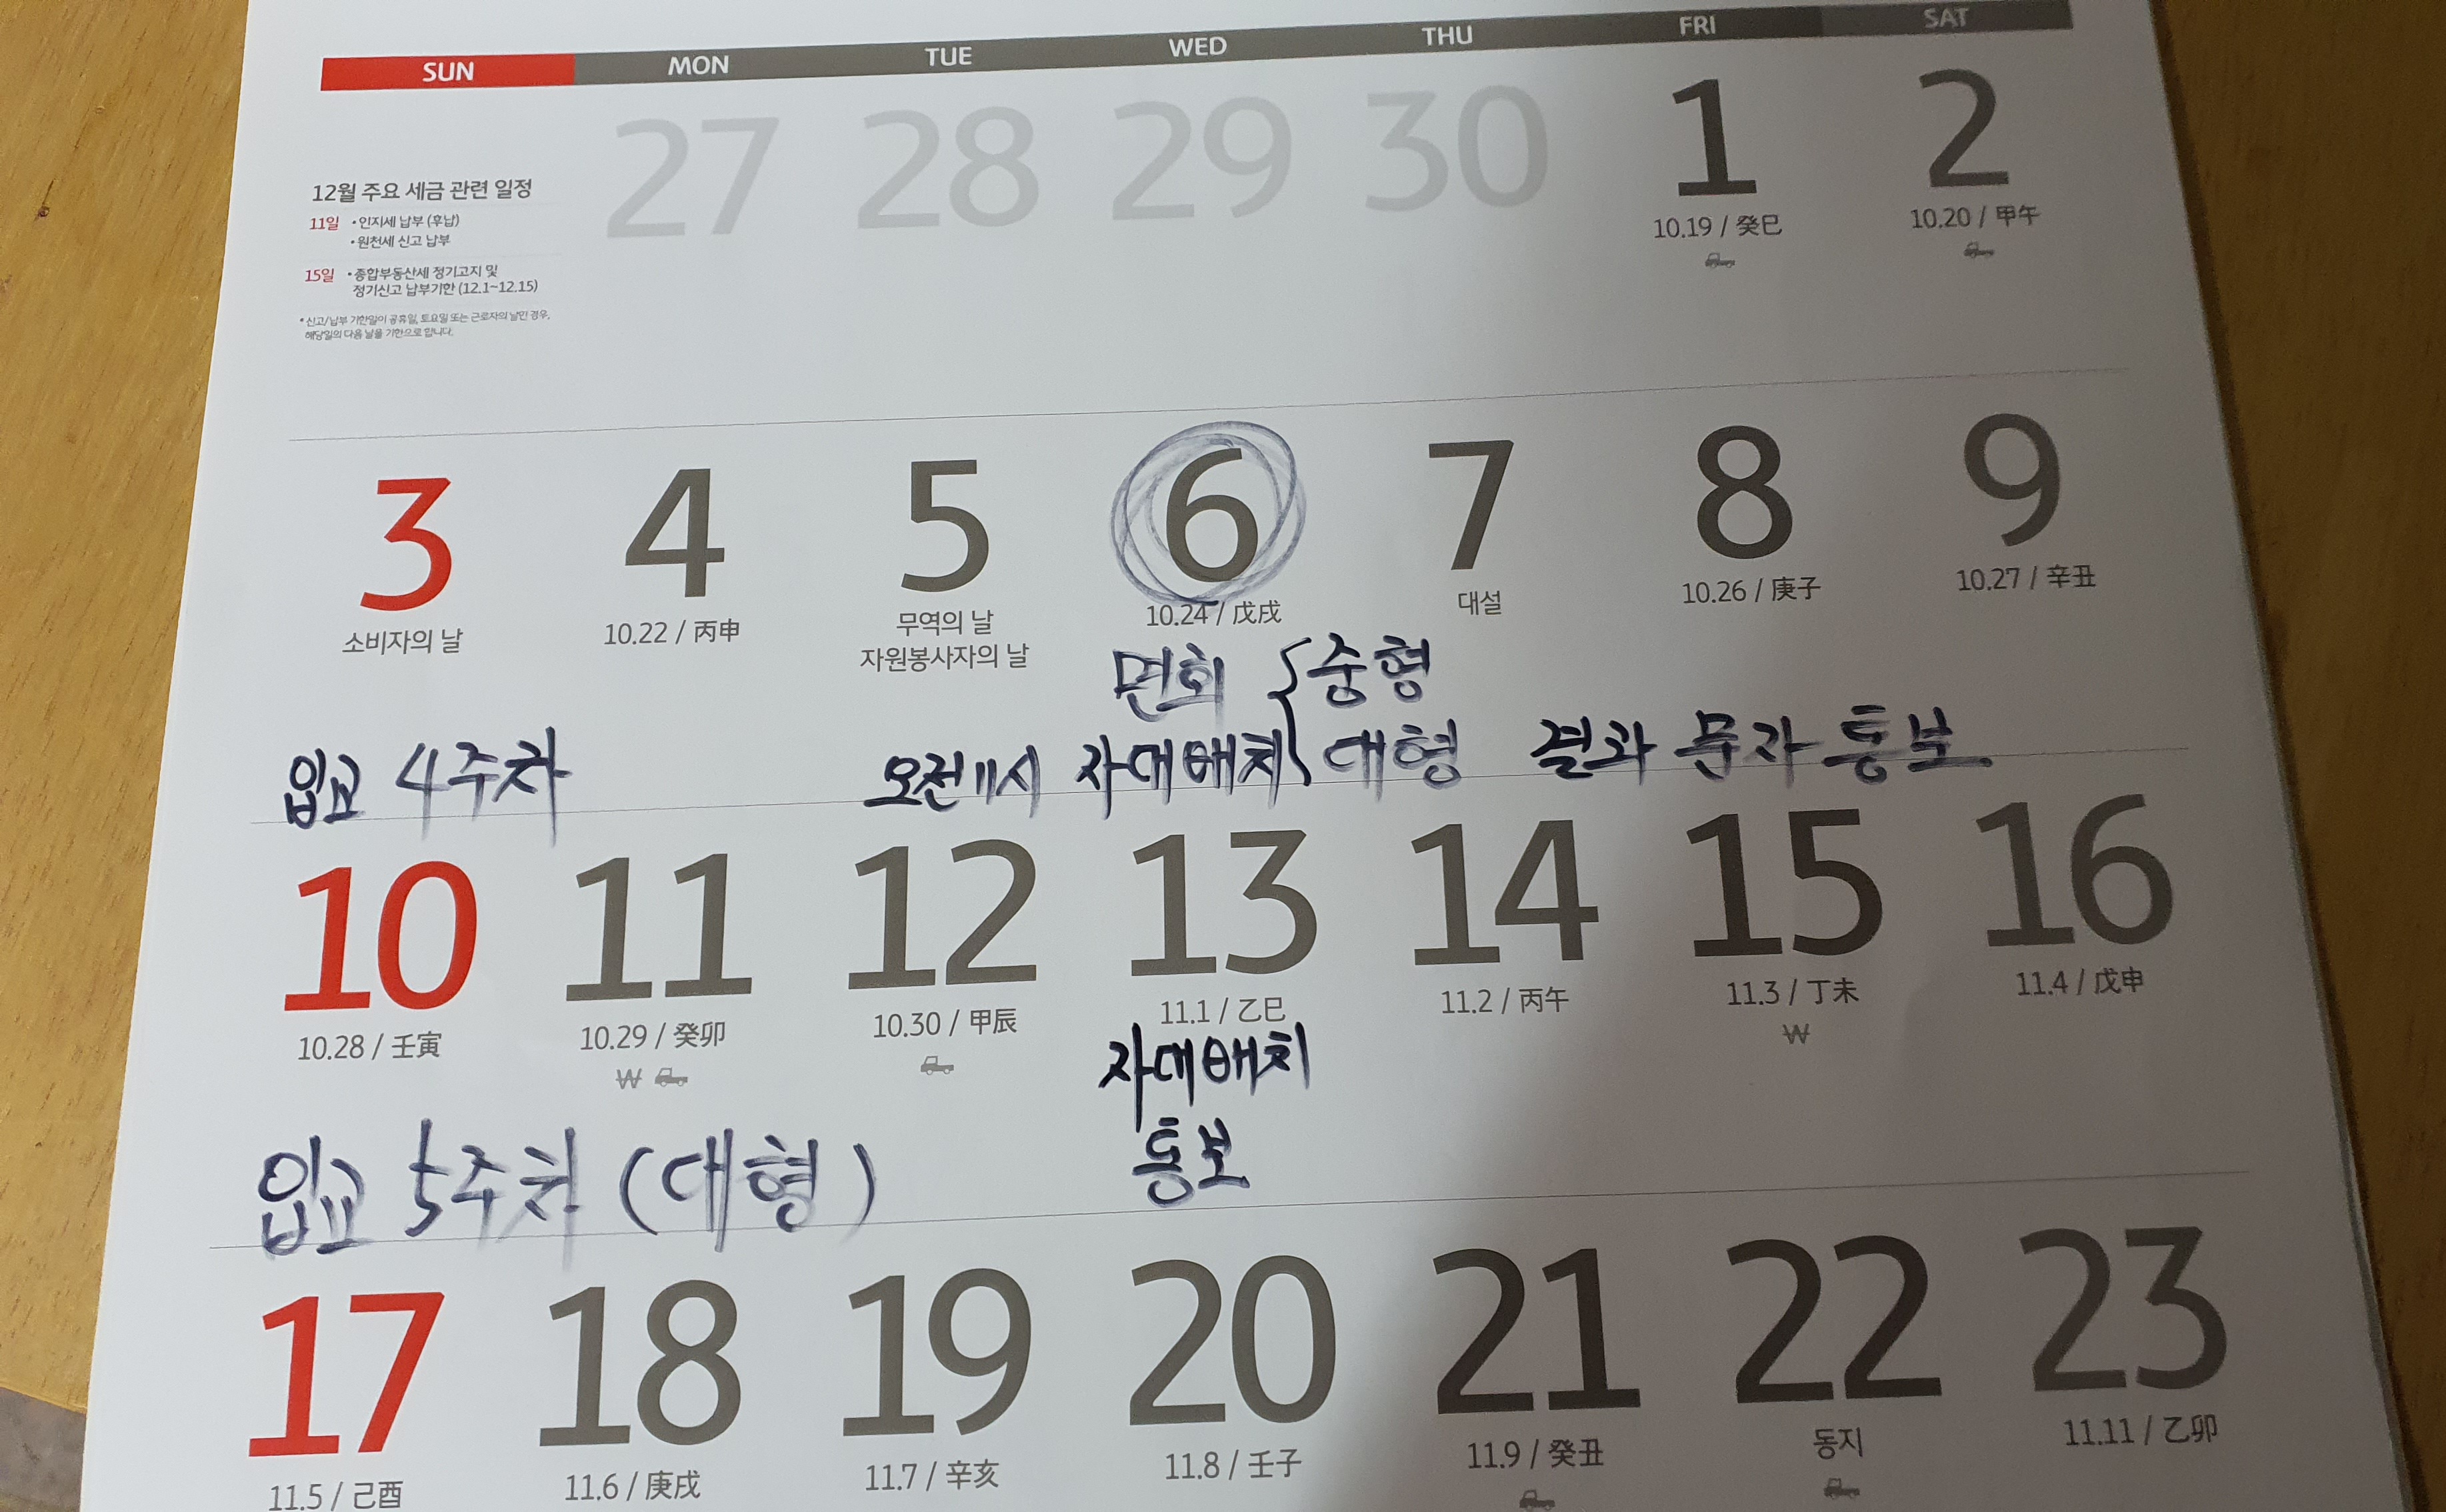 SUN MON TUE WED THU FRI SAT
27 28 29 30 1 2
10.19 / 癸巳 10.20 / 甲午
12월 주요 세금 관련 일정
11일 • 인지세 납부 (후납)
• 원천세 신고 납부
15일 • 종합부동산세 정기고지 및
정기신고 납부기한 (12.1~12.15)
* 신고/납부 기한일이 공휴일, 토요일 또는 근로자의 날인 경우,
해당일의 다음 날을 기한으로 합니다.
3 4 5 6 7 8 9
소비자의 날 10.22 / 丙申 무역의 날 10.24 / 戊戌 대설 10.26 / 庚子 10.27 / 辛丑
자원봉사자의 날
면회 { 중형
입교 4주차 오전 11시 자대배치 대형 결과 문자 통보
10 11 12 13 14 15 16
10.28 / 壬寅 10.29 / 癸卯 10.30 / 甲辰 11.1 / 乙巳 11.2 / 丙午 11.3 / 丁未 11.4 / 戊申
₩ ₩
자대배치
통보
입교 5주차 (대형)
17 18 19 20 21 22 23
11.5 / 己酉 11.6 / 庚戌 11.7 / 辛亥 11.8 / 壬子 11.9 / 癸丑 동지 11.11 / 乙卯